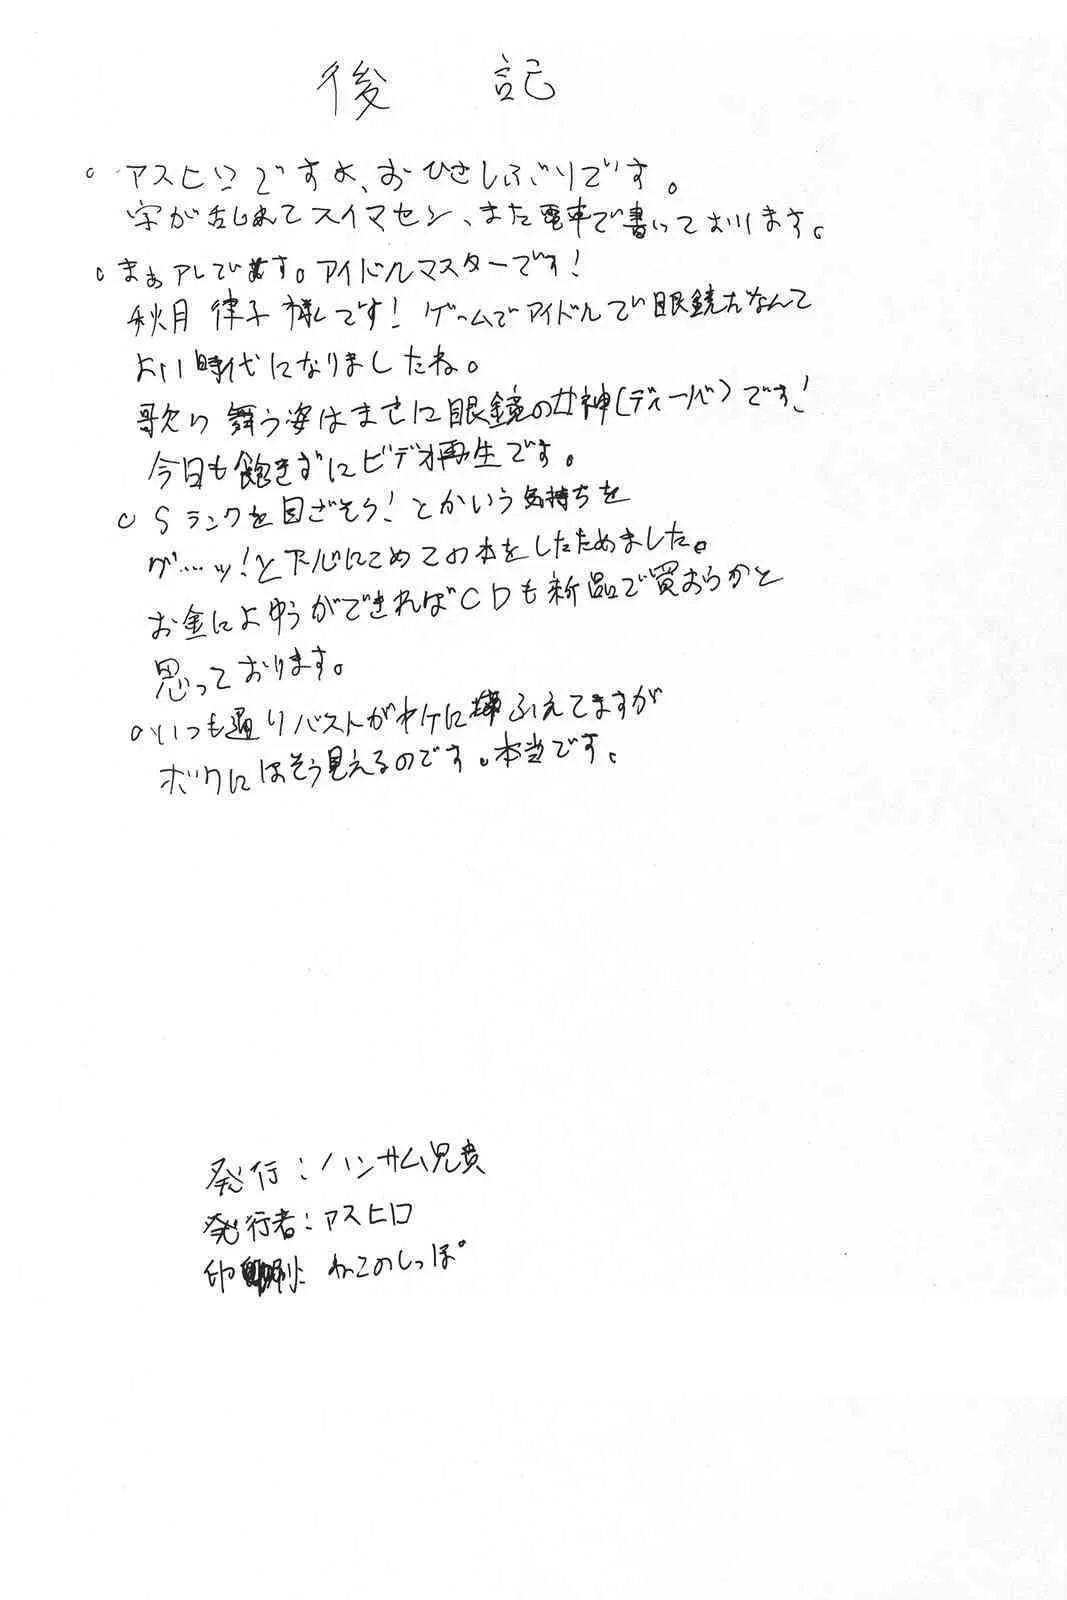 後記
。アスヒロですよ、おひさしぶりです。
字が乱れてスイマセン、また電車で書いております。
。まぁアレです。アイドルマスターです!
秋月 律子様です!ゲームでアイドルで眼鏡だなんて
よい時代になりましたね。
歌い舞う姿はまさに眼鏡の女神(ディーバ)です!
今日も飽きずにビデオ再生です。
。Sランクを目ざそう!とかいう気持ちを
グ…ッ!と下心にこめてこの本をしたためました。
お金によゆうができればCDも新品で買おうかと
思っております。
。いつも通りバストがヤケにふえてますが
ボクにはそう見えるのです。本当です。
発行:ハンサム兄貴
発行者:アスヒロ
印刷:ねこのしっぽ